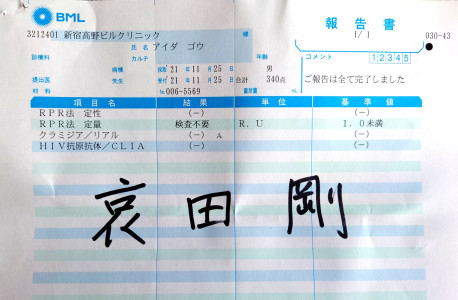 BML 報告書
3212401 新宿高野ビルクリニック 様 1/1 030-43
氏名 アイダ ゴウ 年齢 コメント 12345
診療科 カルテ 男 ご報告は全て完了しました
提出医 病棟 採取 21年11月25日
性 受付 21年11月25日 合計 340点
材料 No. 006-5569 mL
項目名 結果 単位 基準値
RPR法 定性 (-) (-)
RPR法 定量 検査不要 R.U 1.0未満
クラミジア/リアル (-) A (-)
HIV抗原抗体/CLIA (-) (-)
哀田剛